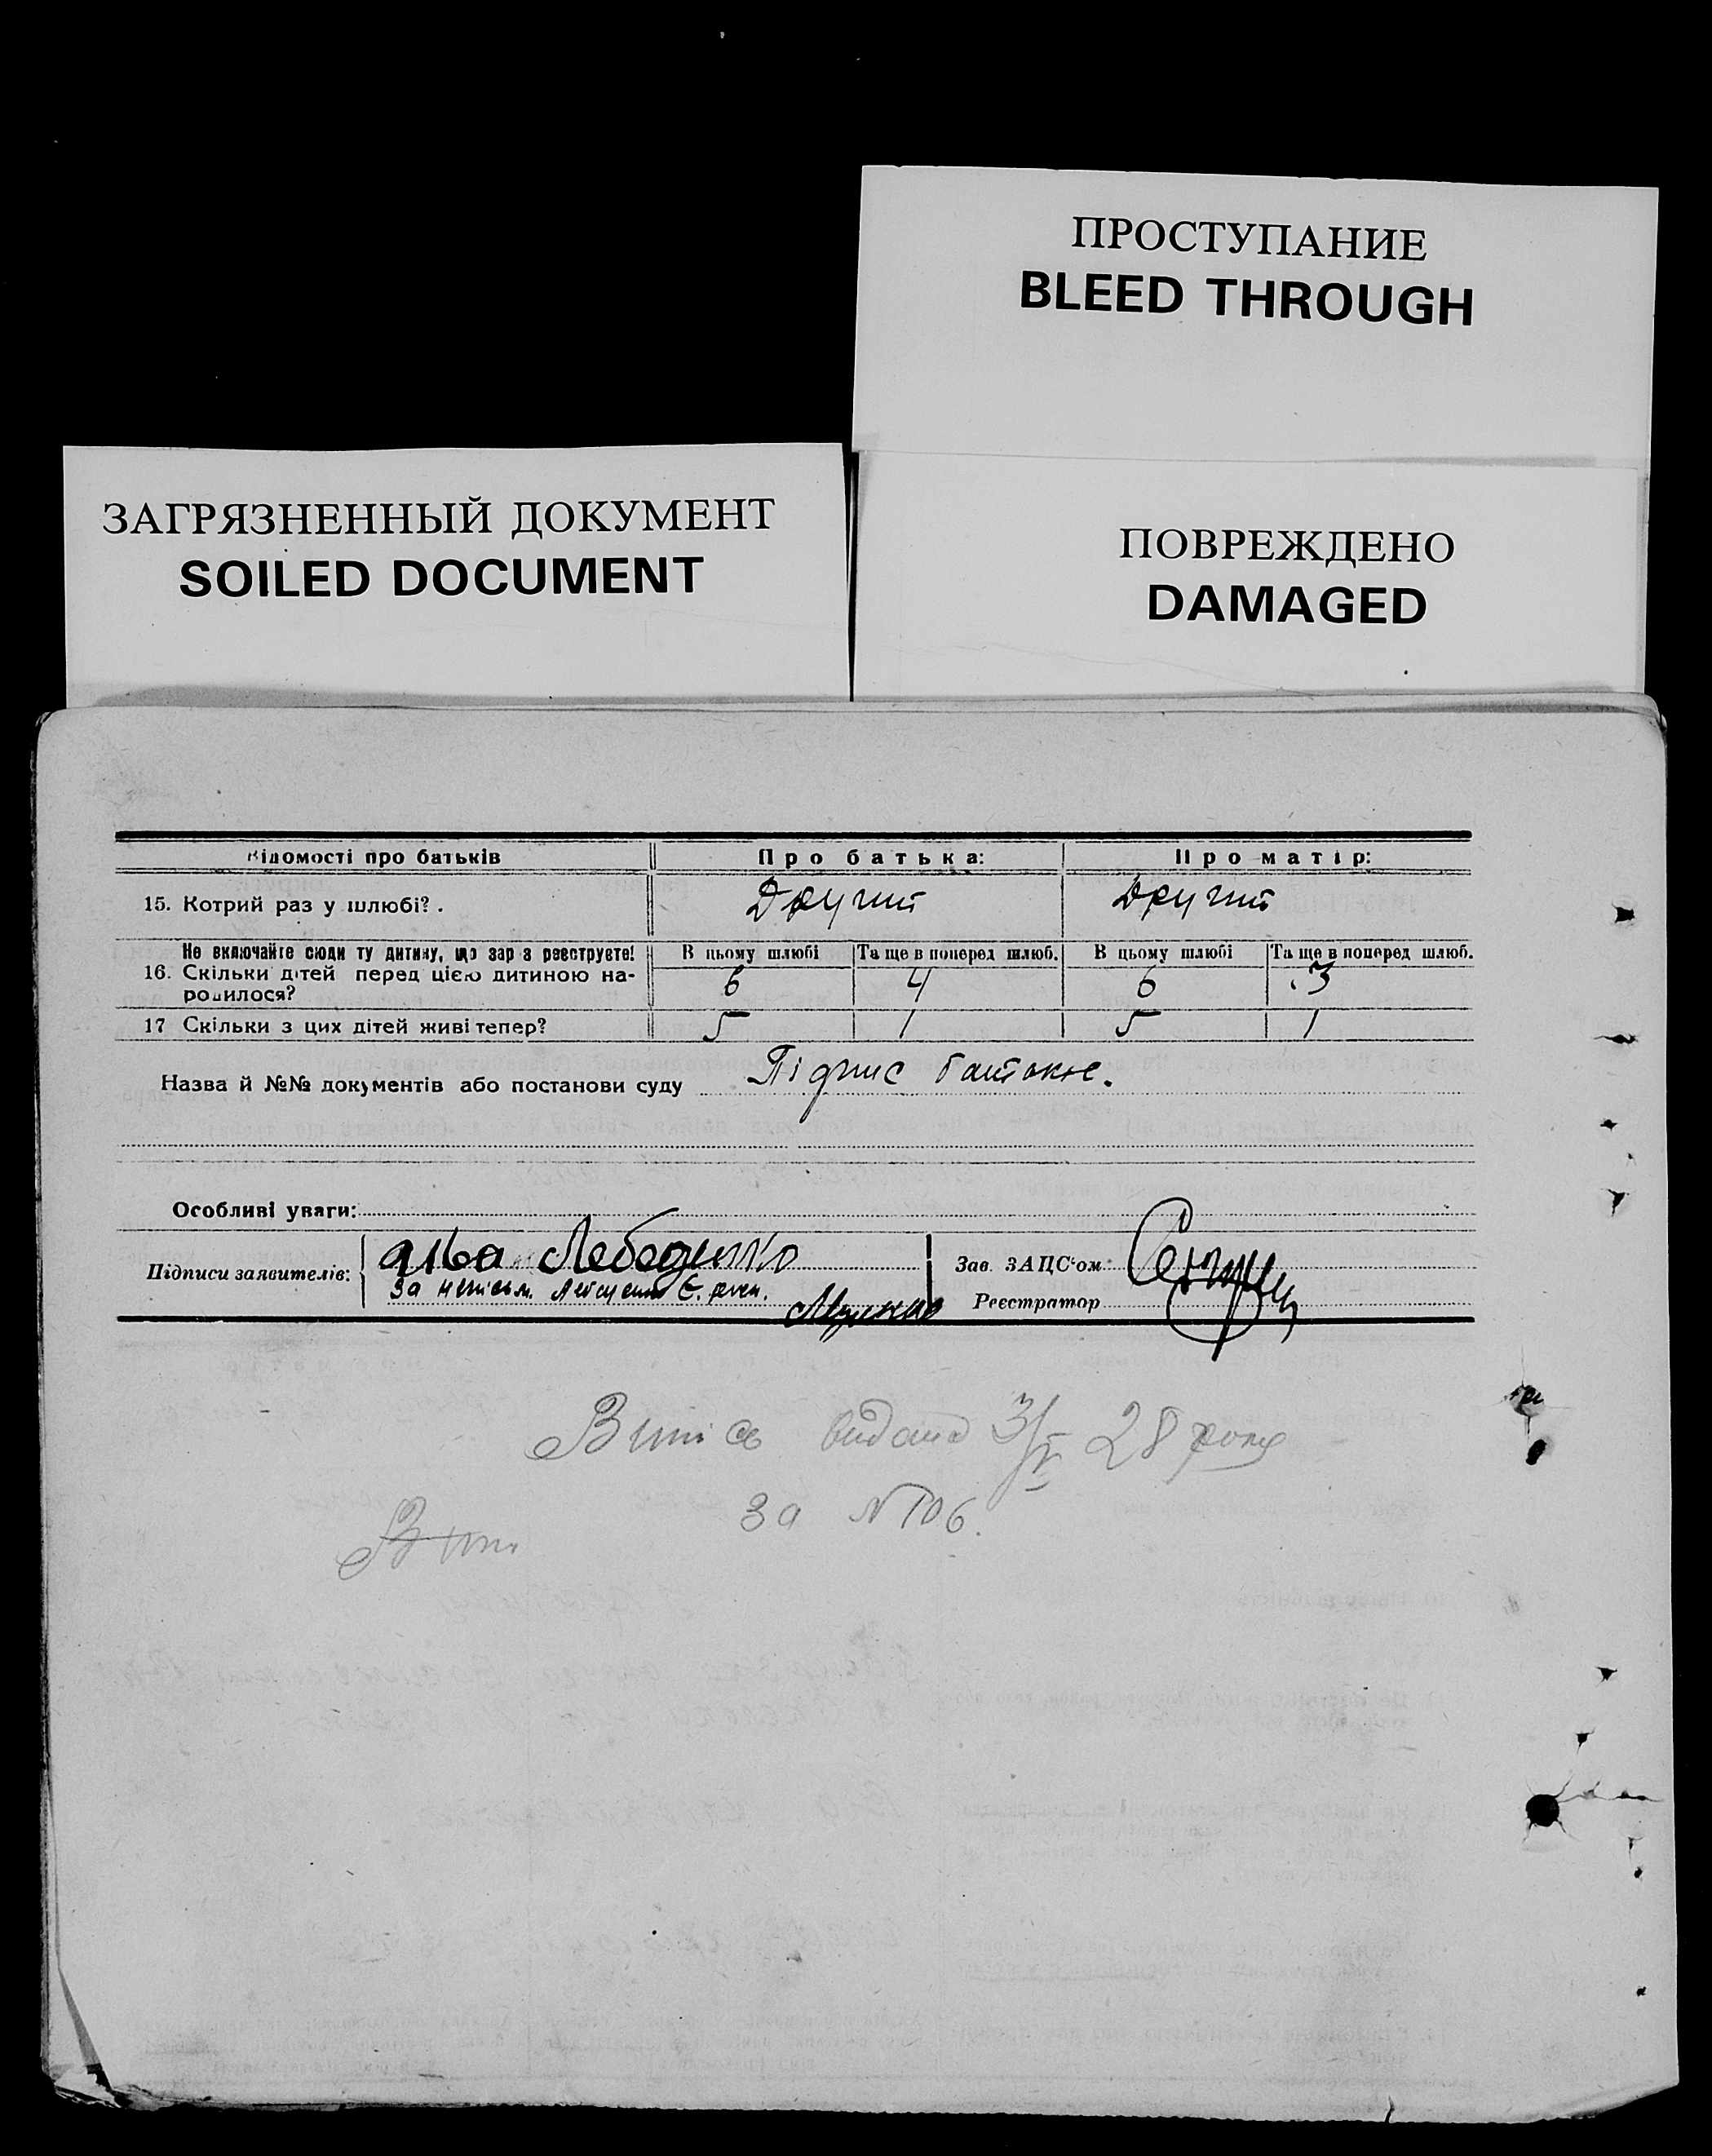 ПРОСТУПАНИЕ
BLEED THROUGH
ЗАГРЯЗНЕННЫЙ ДОКУМЕНТ
SOILED DOCUMENT
ПОВРЕЖДЕНО
DAMAGED
Відомості про батьків Про батька: Про матір:
15. Котрий раз у шлюбі? . Другий Другий
Не включайте сюди ту дитину, що зараз реєструєте! В цьому шлюбі Та ще в поперед шлюб. В цьому шлюбі Та ще в поперед шлюб.
16. Скільки дітей перед цією дитиною на-
родилося? 6 4 6 3
17 Скільки з цих дітей живі тепер? 5 1 5 1
Назва й №№ документів або постанови суду Підпис
Особливі уваги:
Підписи заявителів: Лебеденко Зав. ЗАЦС'ом
За неписьм. Є.
Реєстратор
Випісь видана 3/V 28 року
За N 106.